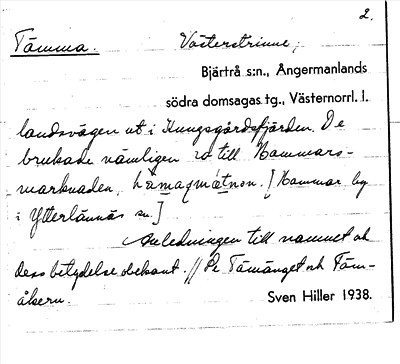 2.
Tömma. Västerstrinne;
Bjärtrå s:n., Ångermanlands
södra domsagas tg., Västernorrl. l.
landsvägen ut i Kungsgårdsfjärden. De
brukade nämligen ro till Hammars-
marknaden, hàmaqmátnon. [Hammar by
i Ytterlännäs sn.]
Anledningen till namnet och
dess betydelse obekant. // Se Tömänget och Töm-
åkern. Sven Hiller 1938.